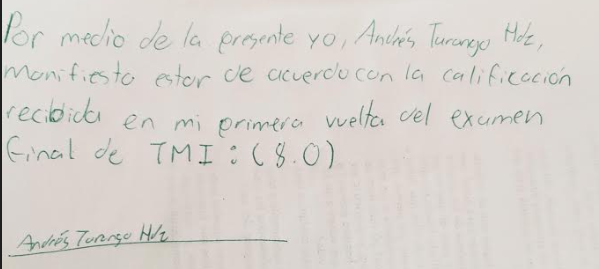 Por medio de la presente yo, Andrés Turango Hdz,
manifiesto estar de acuerdo con la calificación
recibida en mi primera vuelta del examen
final de TMI : (8.0)
Andrés Turango Hdz